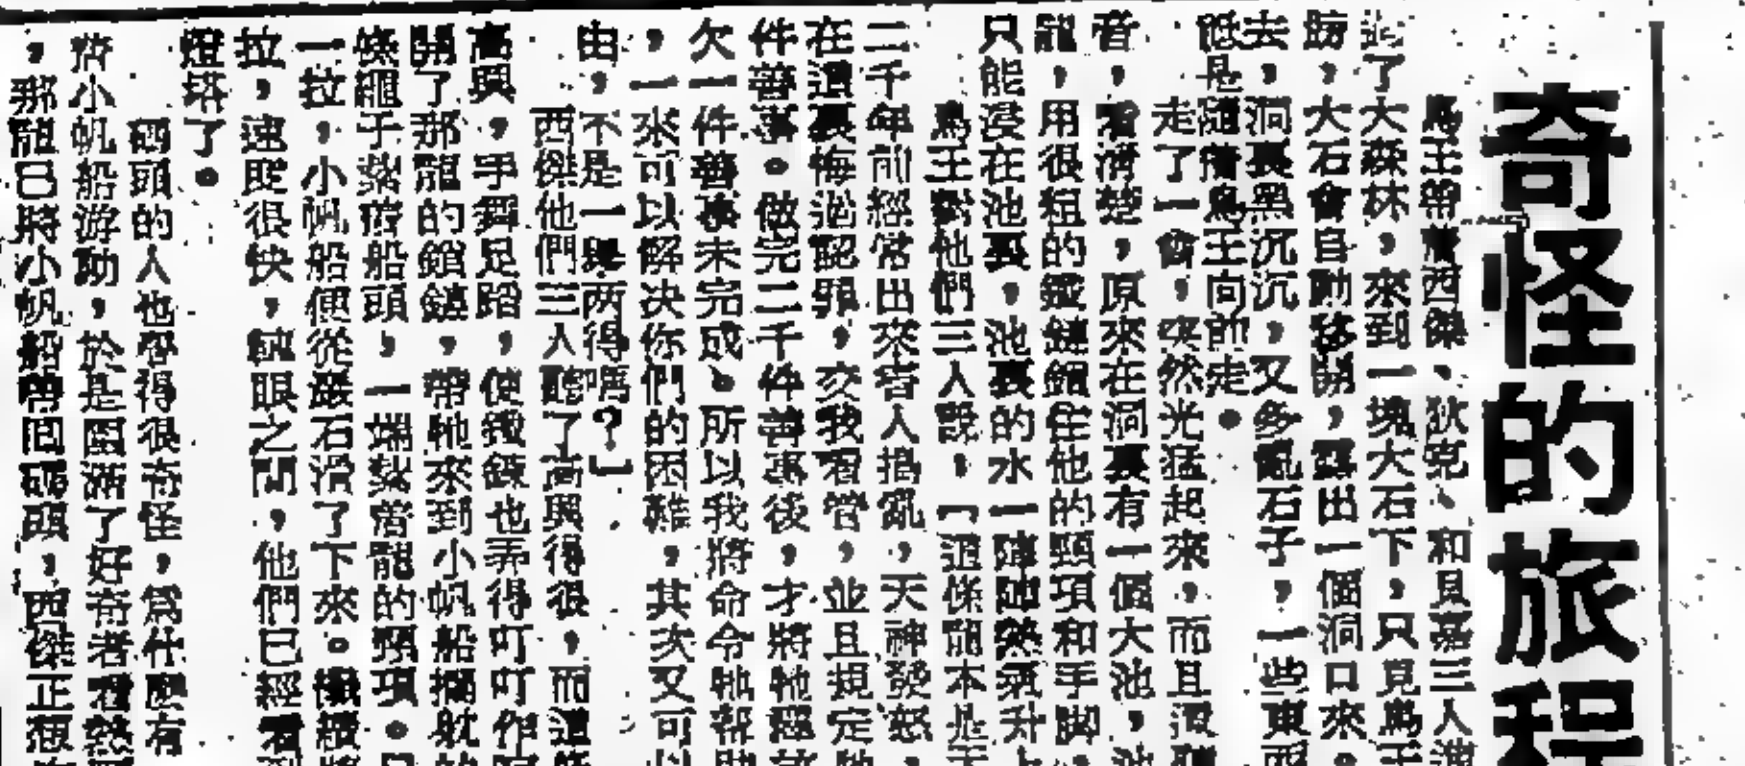 奇怪的旅程
鳥王帶着西傑、狄克、和貝嘉三人
了大森林，來到一塊大石下，只見鳥王
，大石會自動移開，露出一個洞口來。
去，洞裏黑沉沉，又多亂石子，一些東西
是隨着鳥王向前走。
走了一會，突然光猛起來，而且
音，看清楚，原來在洞裏有一個大池，池
龍，用很粗的鐵鏈鎖住他的頸項和手脚，
只能浸在池裏，池裏的水一陣陣熱氣升上
鳥王對他們三人說，「這條龍本是天
二千年前經常出來害人搗亂，天神發怒，
在這裏悔過認罪，交我看管，並且規定牠
件善事。做完二千件善事後，才將牠釋放
欠一件善事未完成。所以我將命令牠幫助
，一來可以解决你們的困難，其次又可以
由，不是一舉两得嗎？」
西傑他們三人聽了高興得很，而這條
高興，手舞足蹈，使鐵鍊也弄得叮叮作响
開了那龍的鎖鏈，帶牠來到小帆船擱淺的
條繩子紮着船頭，一端紮着龍的頸項。只
一拉，小帆船便從礁石滑了下來。繼續將
拉，速度很快，轉眼之間，他們已經看到
燈塔了。
碼頭的人也覺得很奇怪，爲什麽有
小帆船游動，於是圍滿了好奇者看熱
，那龍已將小帆船帶回碼頭，西傑正想